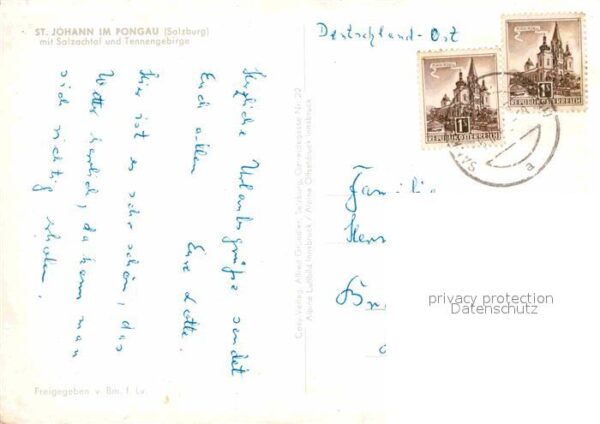 ST. JOHANN IM PONGAU (Salzburg)
mit Salzachtal und Tennengebirge
Deutschland-Ost
Herzliche Urlaubsgrüße sendet
Euch allen Eure Lotte.
Hier ist es sehr schön, das
Wetter herrlich, da kann man
sich richtig erholen.
Cosy-Verlag, Alfred Gründler, Salzburg,
Alpine Luftbild Innsbruck / Alpine Offsetdruck Innsbruck
REPUBLIK ÖSTERREICH
REPUBLIK ÖSTERREICH
Familie
privacy protection
Datenschutz
Freigegeben v. Bm. f. Lv.